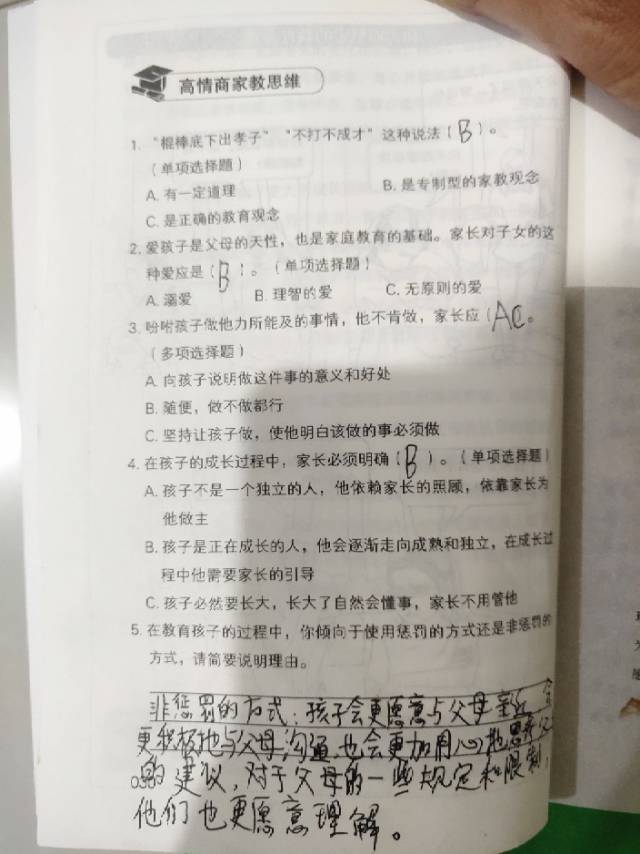 高情商家教思维
1. “棍棒底下出孝子”“不打不成才”这种说法(B)。
(单项选择题)
A. 有一定道理 B. 是专制型的家教观念
C. 是正确的教育观念
2. 爱孩子是父母的天性,也是家庭教育的基础。家长对子女的这
种爱应是(B)。(单项选择题)
A. 溺爱 B. 理智的爱 C. 无原则的爱
3. 吩咐孩子做他力所能及的事情,他不肯做,家长应(AC。
(多项选择题)
A. 向孩子说明做这件事的意义和好处
B. 随便,做不做都行
C. 坚持让孩子做,使他明白该做的事必须做
4. 在孩子的成长过程中,家长必须明确(B)。(单项选择题)
A. 孩子不是一个独立的人,他依赖家长的照顾,依靠家长为
他做主
B. 孩子是正在成长的人,他会逐渐走向成熟和独立,在成长过
程中他需要家长的引导
C. 孩子必然要长大,长大了自然会懂事,家长不用管他
5. 在教育孩子的过程中,你倾向于使用惩罚的方式还是非惩罚的
方式,请简要说明理由。
非惩罚的方式:孩子会更愿意与父母亲近,会
更积极地与父母沟通,也会更加用心地思考父
的建议,对于父母的一些规定和限制,
他们也更愿意理解。